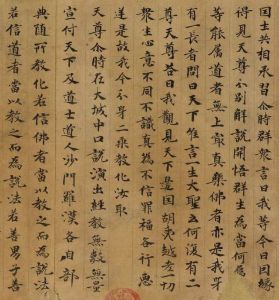 国主相承習尒時群衆言曰我等今日因緣
得見天尊分别解說開悟群生為當何應
等能属道者無上最真樂佛者亦是我身
有一長者問曰天下唯言一大聖云何復有二
尊天尊荅曰我觀見天下邊國胡夷越老一切
衆生心意不同不識真為不信罪福各行惡
逆是故我今分身二乘教化汝取
天尊尒時在大城中口說演出經教無數無量
宣付天下及道士道人沙門羅漢各自部
典随所教化若信佛者當以教之而為說法
若信道者當以教之而為說法若善男子善